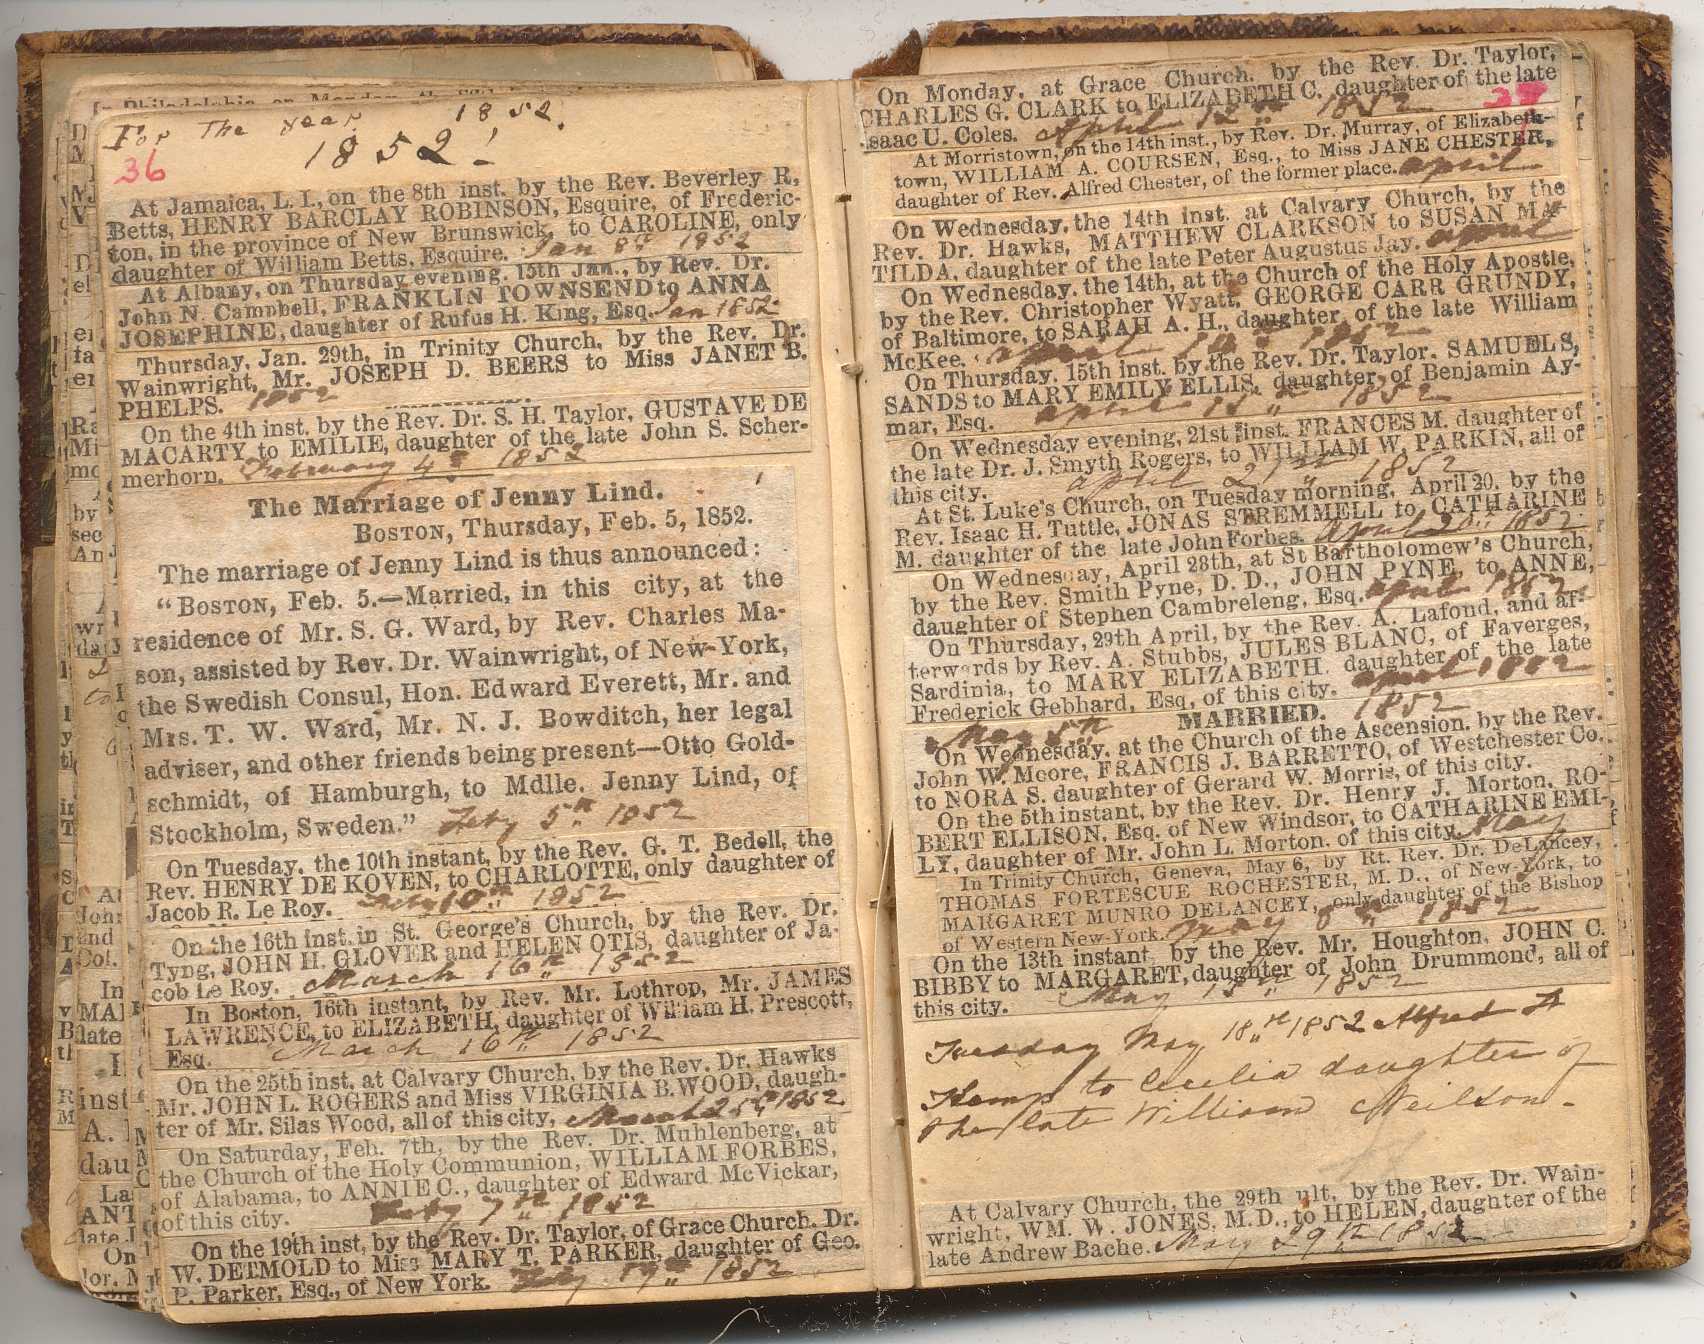 For The Year 1852.
1852!
36
At Jamaica, L. I., on the 8th inst. by the Rev. Beverley R,
Betts, HENRY BARCLAY ROBINSON, Esquire, of Frederic-
ton, in the province of New Brunswick, to CAROLINE, only
daughter of William Betts, Esquire. Jan 8th 1852
At Albany, on Thursday evening, 15th Jan., by Rev. Dr.
John N. Campbell, FRANKLIN TOWNSEND to ANNA
JOSEPHINE, daughter of Rufus H. King, Esq. Jan 1852
Thursday, Jan. 29th, in Trinity Church, by the Rev. Dr.
Wainwright, Mr. JOSEPH D. BEERS to Miss JANET B.
PHELPS. 1852
On the 4th inst. by the Rev. Dr. S. H. Taylor, GUSTAVE DE
MACARTY to EMILIE, daughter of the late John S. Scher-
merhorn. February 4th 1852
The Marriage of Jenny Lind.
BOSTON, Thursday, Feb. 5, 1852.
The marriage of Jenny Lind is thus announced:
"BOSTON, Feb. 5.—Married, in this city, at the
residence of Mr. S. G. Ward, by Rev. Charles Ma-
son, assisted by Rev. Dr. Wainwright, of New-York,
the Swedish Consul, Hon. Edward Everett, Mr. and
Mrs. T. W. Ward, Mr. N. J. Bowditch, her legal
adviser, and other friends being present—Otto Gold-
schmidt, of Hamburgh, to Mdlle. Jenny Lind, of
Stockholm, Sweden." Feby 5th 1852
On Tuesday, the 10th instant, by the Rev. G. T. Bedell, the
Rev. HENRY DE KOVEN, to CHARLOTTE, only daughter of
Jacob R. Le Roy. Feby 10th 1852
On the 16th inst. in St. George's Church, by the Rev. Dr.
Tyng, JOHN H. GLOVER and HELEN OTIS, daughter of Ja-
cob Le Roy. March 16th 1852
In Boston, 16th instant, by Rev. Mr. Lothrop, Mr. JAMES
LAWRENCE, to ELIZABETH, daughter of William H. Prescott,
Esq. March 16th 1852
On the 25th inst. at Calvary Church, by the Rev. Dr. Hawks
Mr. JOHN L. ROGERS and Miss VIRGINIA B. WOOD, daugh-
ter of Mr. Silas Wood, all of this city, March 25th 1852
On Saturday, Feb. 7th, by the Rev. Dr. Muhlenberg, at
the Church of the Holy Communion, WILLIAM FORBES,
of Alabama, to ANNIE C., daughter of Edward McVickar,
of this city. Feby 7th 1852
On the 19th inst, by the Rev. Dr. Taylor, of Grace Church, Dr.
W. DETMOLD to Miss MARY T. PARKER, daughter of Geo.
P. Parker, Esq., of New York. 19th 1852
37
On Monday, at Grace Church, by the Rev. Dr. Taylor,
CHARLES G. CLARK to ELIZABETH C. daughter of the late
Isaac U. Coles. April 12th 1852
At Morristown, on the 14th inst., by Rev. Dr. Murray, of Elizabeth-
town, WILLIAM A. COURSEN, Esq., to Miss JANE CHESTER,
daughter of Rev. Alfred Chester, of the former place. april
On Wednesday, the 14th inst. at Calvary Church, by the
Rev. Dr. Hawks, MATTHEW CLARKSON to SUSAN MA-
TILDA, daughter of the late Peter Augustus Jay. april
On Wednesday, the 14th, at the Church of the Holy Apostle,
by the Rev. Christopher Wyatt, GEORGE CARR GRUNDY,
of Baltimore, to SARAH A. H., daughter of the late William
McKee. april 14th 1852
On Thursday, 15th inst. by the Rev. Dr. Taylor, SAMUEL S,
SANDS to MARY EMILY ELLIS, daughter of Benjamin Ay-
mar, Esq. april 15th 1852
On Wednesday evening, 21st inst. FRANCES M. daughter of
the late Dr. J. Smyth Rogers, to WILLIAM W. PARKIN, all of
this city. april 21st 1852
At St. Luke's Church, on Tuesday morning, April 20, by the
Rev. Isaac H. Tuttle, JONAS STREMMELL to CATHARINE
M. daughter of the late John Forbes. april 20th 1852
On Wednesday, April 28th, at St Bartholomew's Church,
by the Rev. Smith Pyne, D. D., JOHN PYNE, to ANNE,
daughter of Stephen Cambreleng, Esq. april 1852
On Thursday, 29th April, by the Rev. A. Lafond, and af-
terwards by Rev. A. Stubbs, JULES BLANC, of Faverges,
Sardinia, to MARY ELIZABETH, daughter of the late
Frederick Gebhard, Esq, of this city. april 1852
MARRIED. 1852
May 5th
On Wednesday, at the Church of the Ascension, by the Rev.
John W. Moore, FRANCIS J. BARRETTO, of Westchester Co.
to NORA S. daughter of Gerard W. Morris, of this city.
On the 5th instant, by the Rev. Dr. Henry J. Morton, RO-
BERT ELLISON, Esq. of New Windsor, to CATHARINE EMI-
LY, daughter of Mr. John L. Morton, of this city. May
In Trinity Church, Geneva, May 6, by Rt. Rev. Dr. DeLancey,
THOMAS FORTESCUE ROCHESTER, M. D., of New-York, to
MARGARET MUNRO DELANCEY, only daughter of the Bishop
of Western New-York. May 6th 1852
On the 13th instant, by the Rev. Mr. Houghton, JOHN C.
BIBBY to MARGARET, daughter of John Drummond, all of
this city. May 13th 1852
Tuesday May 18th 1852 Alfred
Kemp to Cecelia daughter of
the late William Neilson.
At Calvary Church, the 29th ult. by the Rev. Dr. Wain-
wright, WM. W. JONES, M.D., to HELEN, daughter of the
late Andrew Bache. May 29th 1852